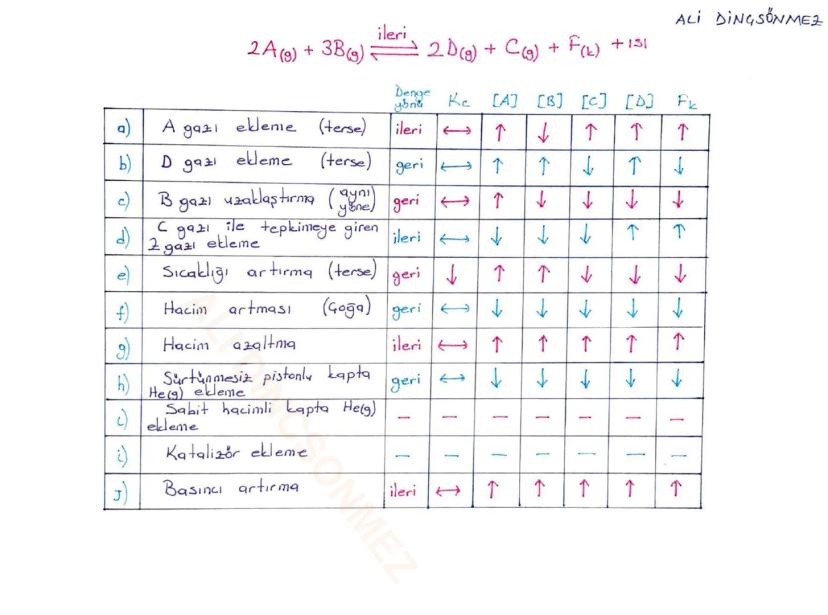 ALİ DİNÇSÖNMEZ
ileri
2A(g) + 3B(g) ⇌ 2D(g) + C(g) + F(k) + ısı
Denge yönü Kc [A] [B] [C] [D] Fk
a) A gazı ekleme (terse) ileri ↔ ↑ ↓ ↑ ↑ ↑
b) D gazı ekleme (terse) geri ↔ ↑ ↑ ↓ ↑ ↓
c) B gazı uzaklaştırma (aynı yöne) geri ↔ ↑ ↓ ↓ ↓ ↓
d) C gazı ile tepkimeye giren
Z gazı ekleme ileri ↔ ↓ ↓ ↓ ↑ ↑
e) Sıcaklığı artırma (terse) geri ↓ ↑ ↑ ↓ ↓ ↓
f) Hacim artması (Çoğa) geri ↔ ↓ ↓ ↓ ↓ ↓
g) Hacim azaltma ileri ↔ ↑ ↑ ↑ ↑ ↑
h) Sürtünmesiz pistonlu kapta
He(g) ekleme geri ↔ ↓ ↓ ↓ ↓ ↓
ı) Sabit hacimli kapta He(g)
ekleme — — — — — — —
i) Katalizör ekleme — — — — — — —
J) Basıncı artırma ileri ↔ ↑ ↑ ↑ ↑ ↑
ALİ DİNÇSÖNMEZ